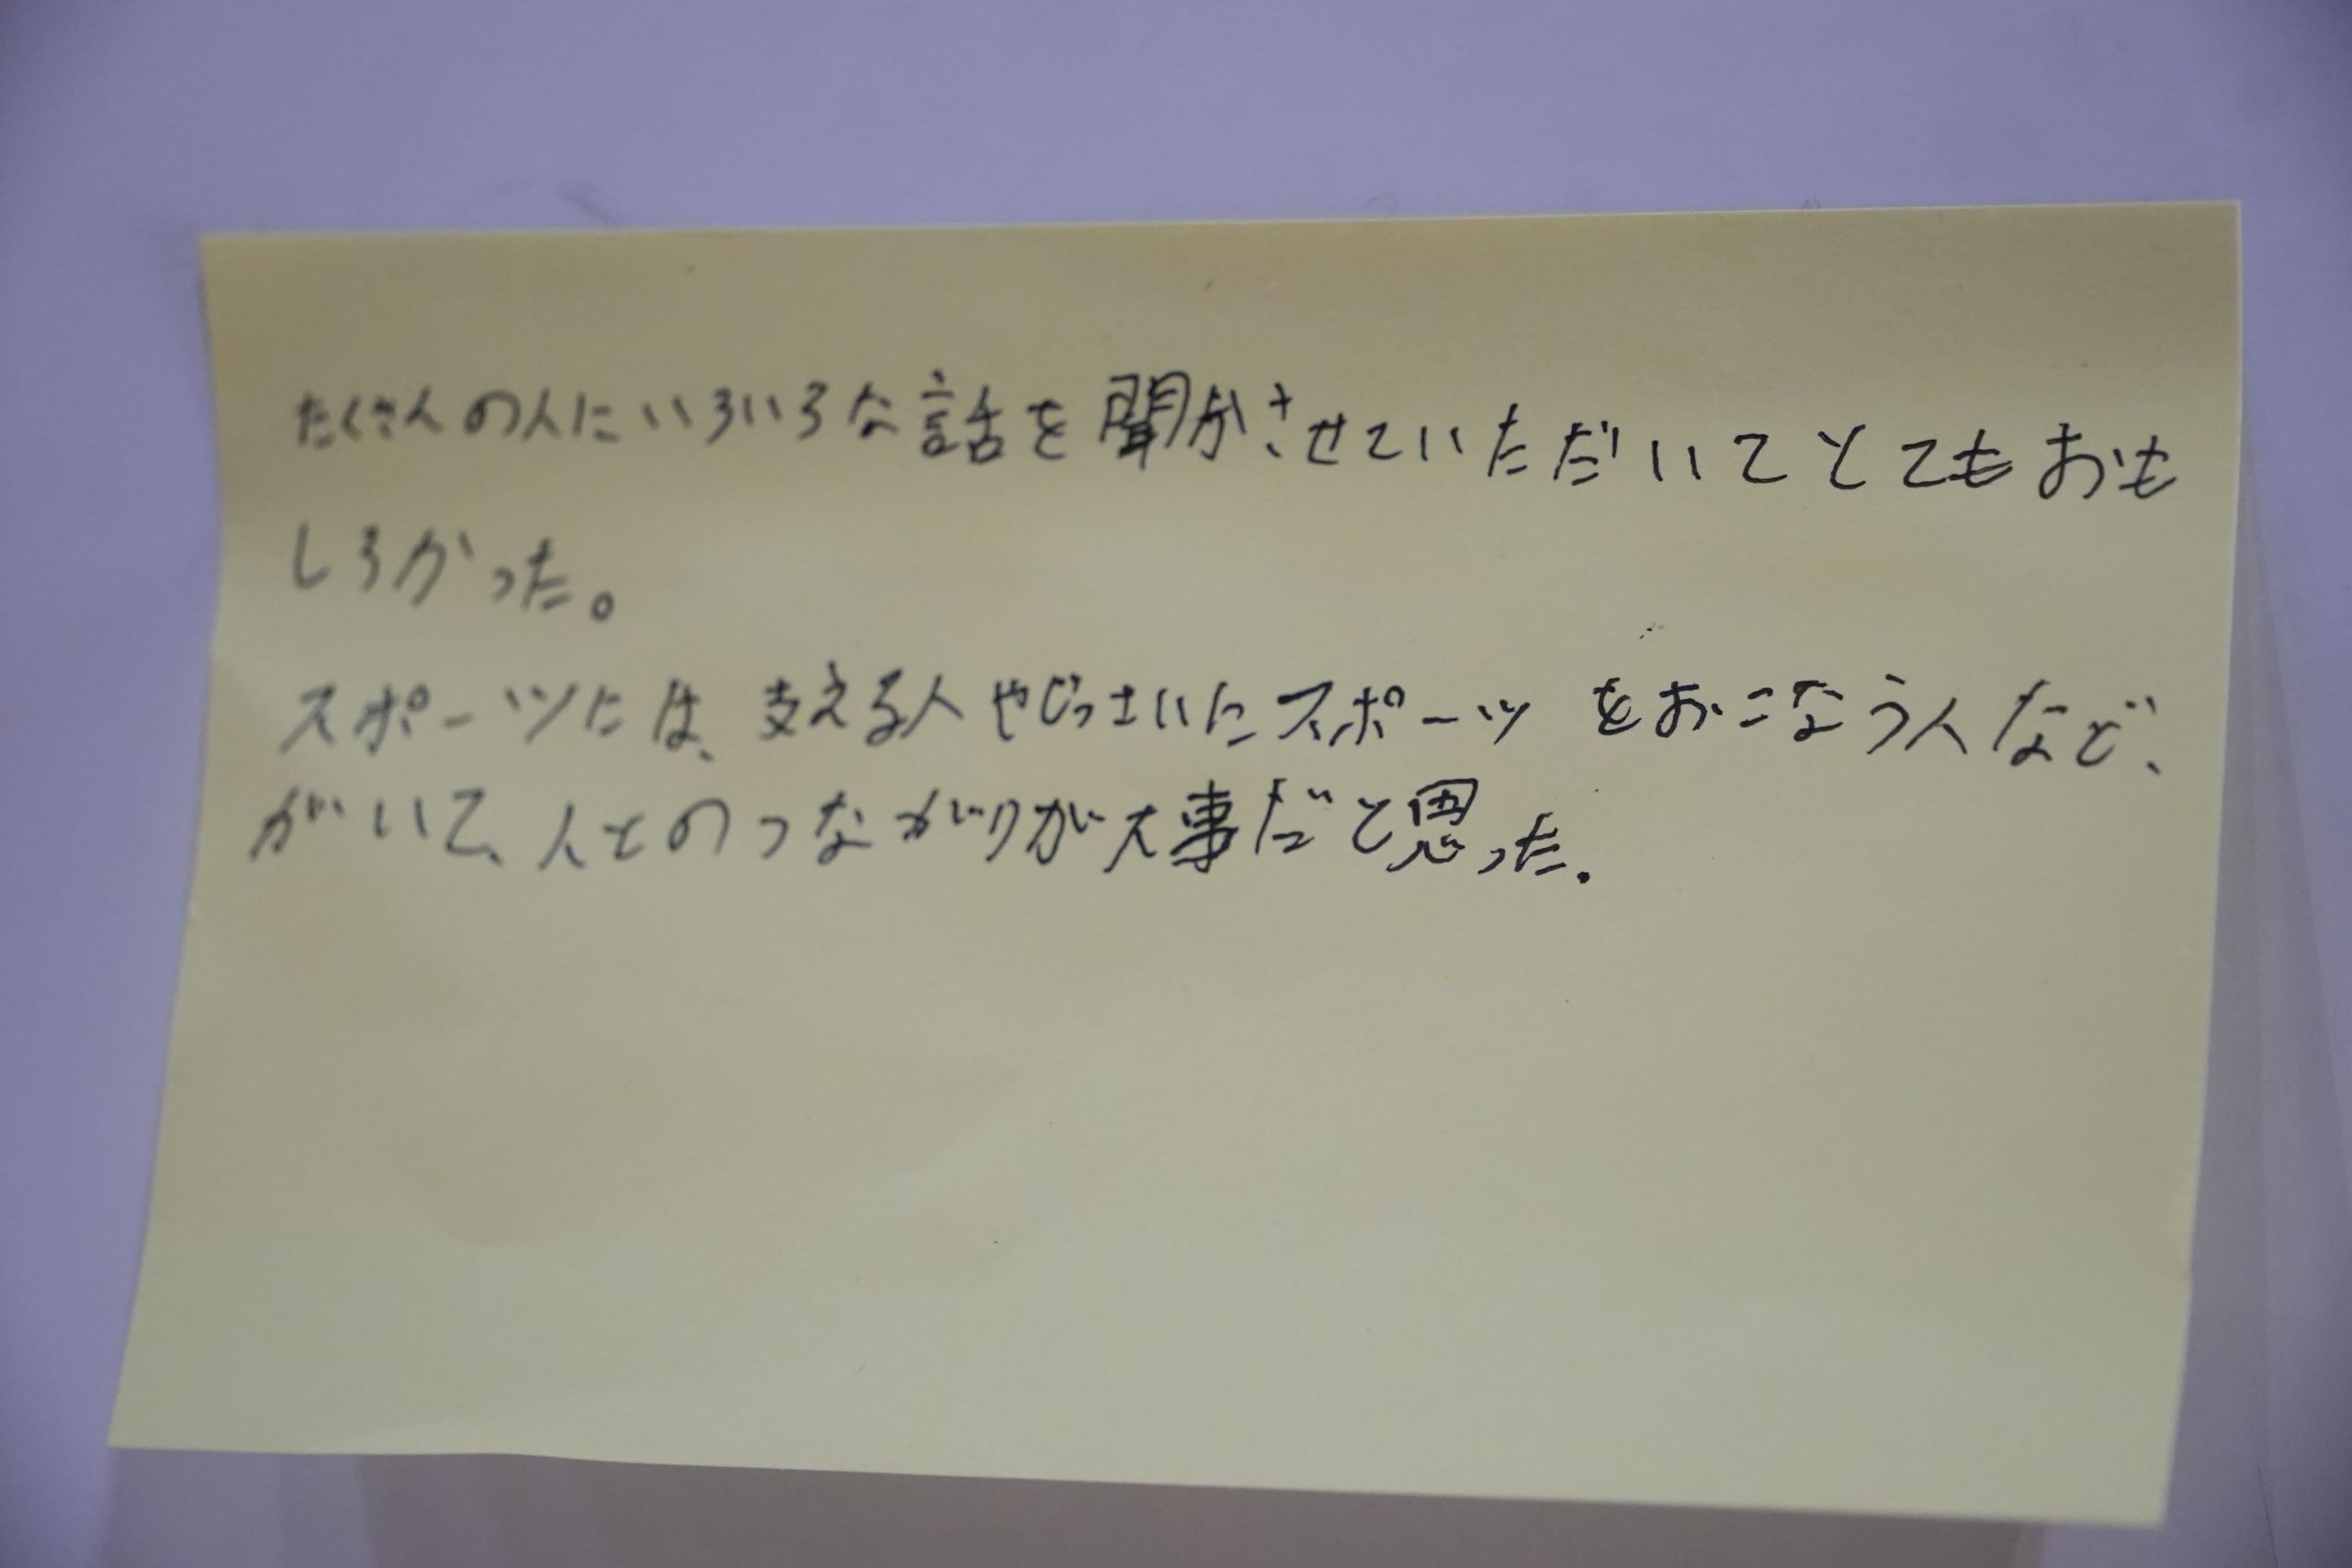 たくさんの人にいろいろな話を聞かさせていただいてとてもおも
しろかった。
スポーツには、支える人やじっさいにスポーツをおこなう人など、
がいて、人とのつながりが大事だと思った.